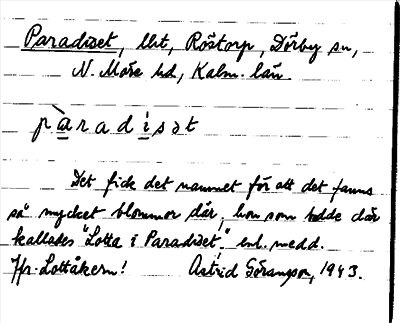 Paradiset, lht, Röstorp, Dörby sn,
N. Möre hd, Kalm. län
pàradisət
Det fick det namnet för att det fanns
så mycket blommor där, hon som bodde där
kallades "Lotta i Paradiset", enl. medd.
Jfr. Lottåkern! Astrid Göransson, 1943.